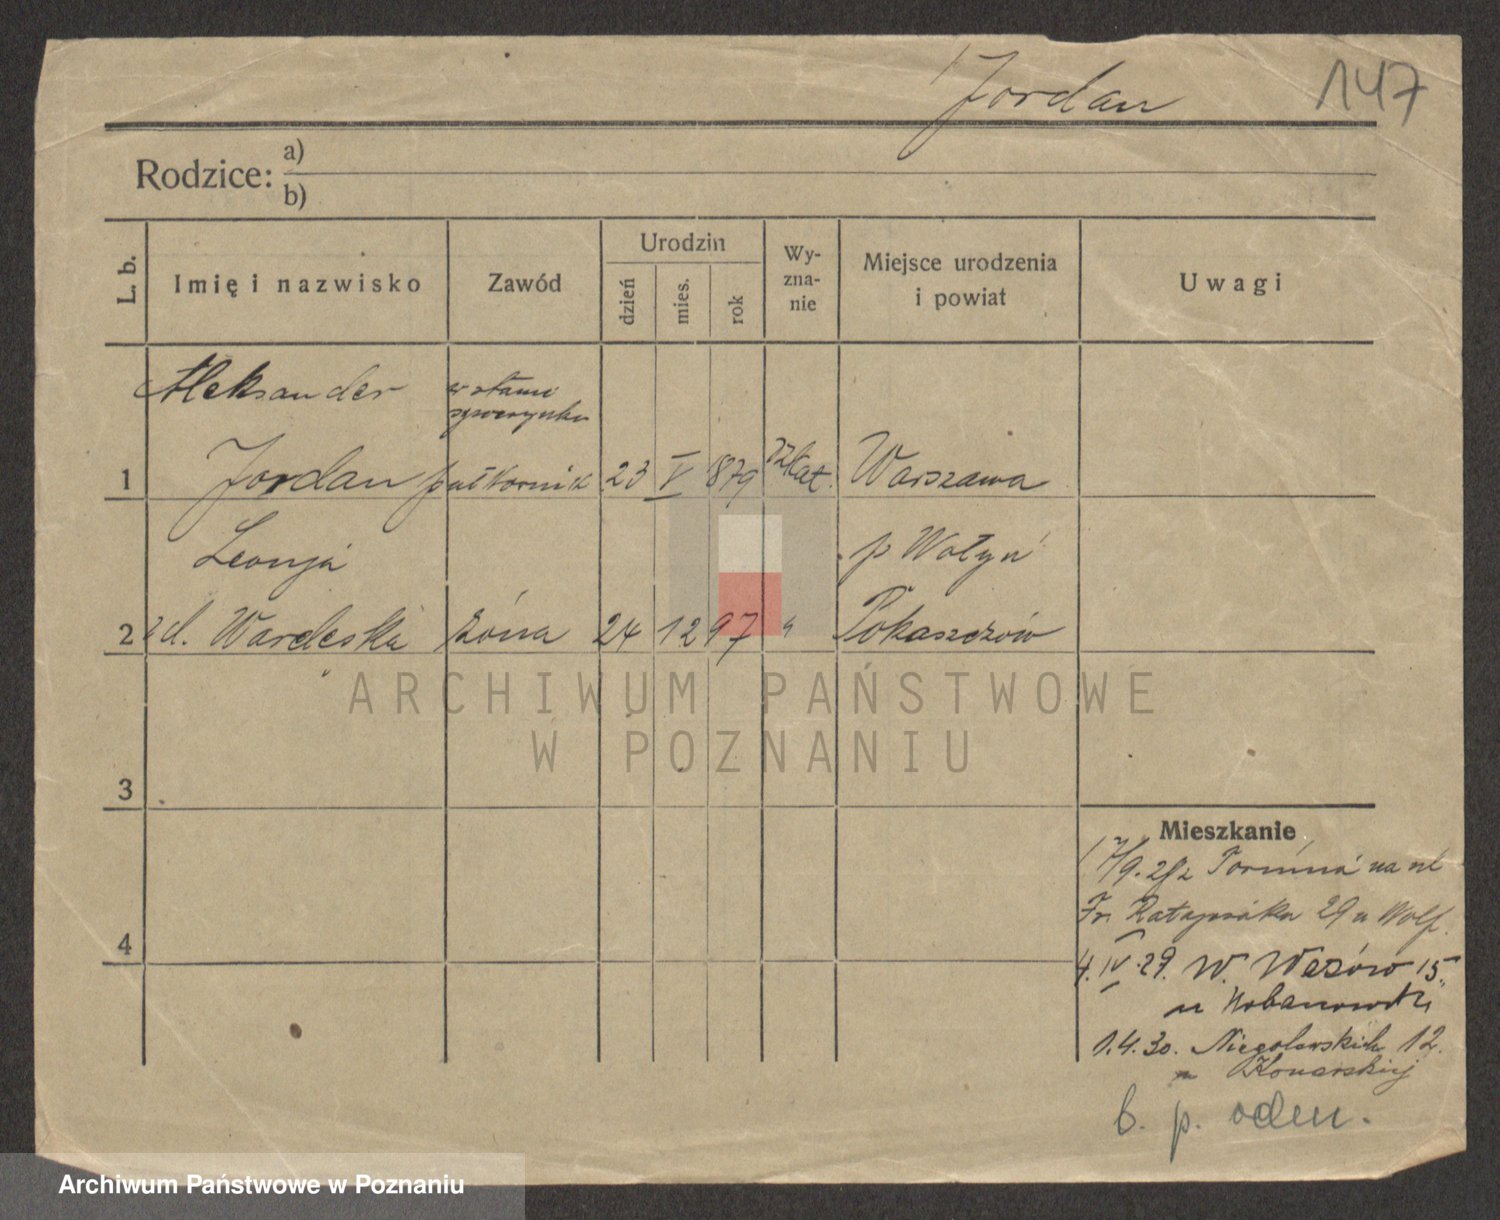 Jordan 147
Rodzice: a)
b)
L. b. Imię i nazwisko Zawód Urodzin dzień mies. rok Wy-zna-nie Miejsce urodzenia i powiat Uwagi
Aleksander w stanie
Jordan
1 pułkownik 23 V 879 rz kat. Warszawa
Leonja p Wołyń
2 z d. Wardeska żona 24 12 97 " Pokaszczów
ARCHIWUM PAŃSTWOWE
W POZNANIU
3
Mieszkanie
17/9. 28 z Torunia na ul
Fr. Ratajczaka 29 u Wolf.
4
4. IV 29. W. Wazów 15.
u
1.4.30. Niegolewskich 12.
u Konarskiej
b. p. odm.
Archiwum Państwowe w Poznaniu